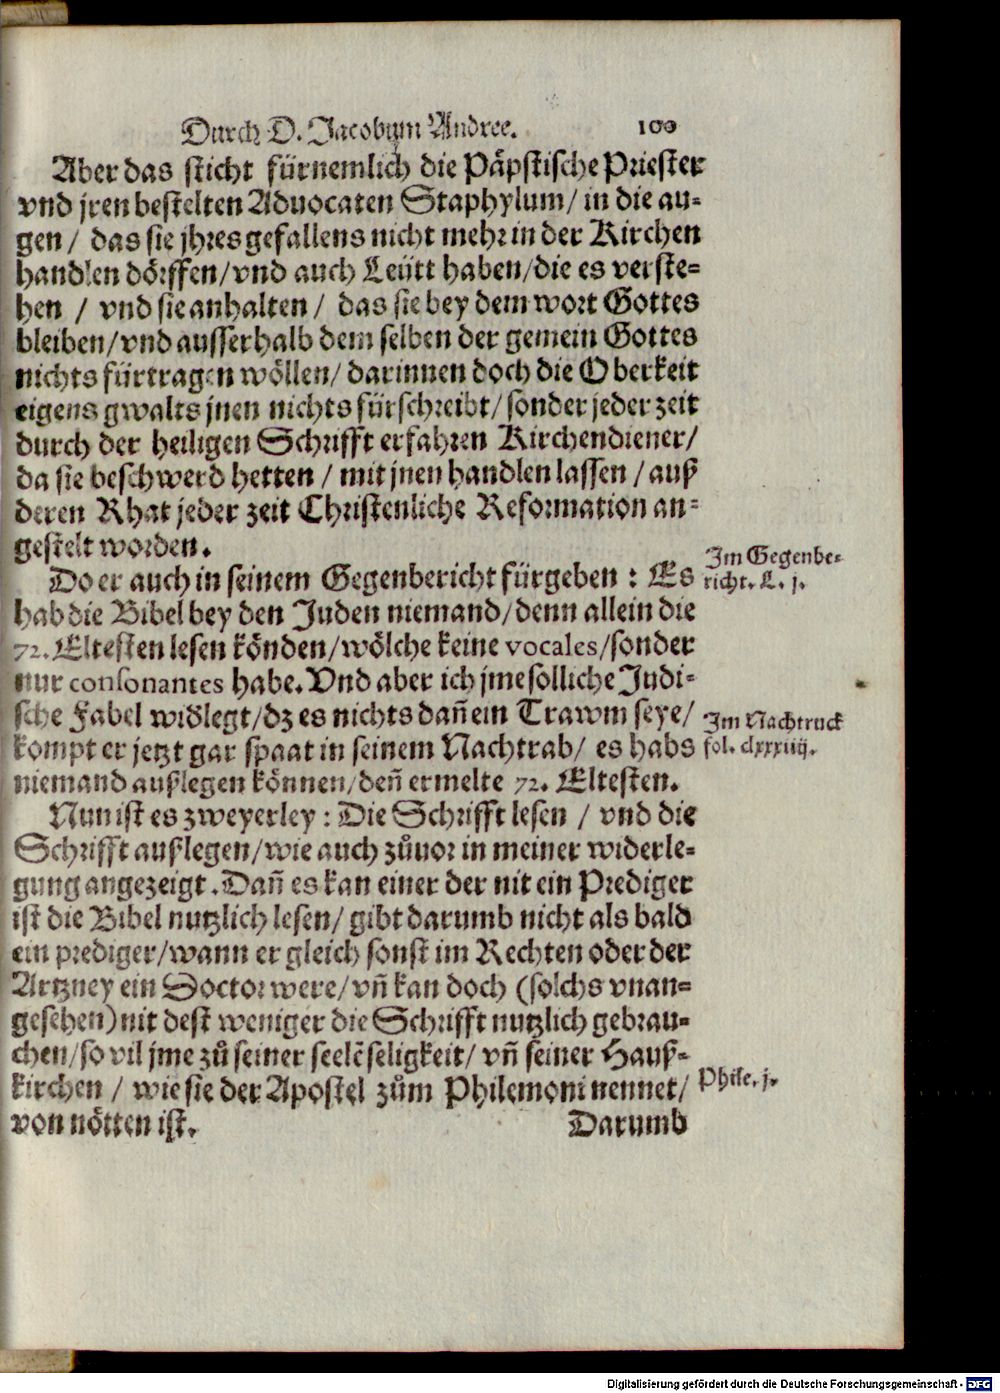 Durch D. Jacobum Andree. 100
Aber das sticht fürnemlich die Päpstische Priester
vnd jren bestelten Aduocaten Staphylum/ in die au-
gen/ das sie jhres gefallens nicht mehr in der Kirchen
handlen dörffen/vnd auch Leütt haben/die es verste-
hen / vnd sie anhalten / das sie bey dem wort Gottes
bleiben/vnd ausserhalb dem selben der gemein Gottes
nichts fürtragen wöllen/ darinnen doch die Oberkeit
eigens gwalts jnen nichts fürschreibt/ sonder jeder zeit
durch der heiligen Schrifft erfahren Kirchendiener/
da sie beschwerd hetten / mit jnen handlen lassen / auß
deren Rhat jeder zeit Christenliche Reformation an-
gestelt worden.
Do er auch in seinem Gegenbericht fürgeben : Es
Im Gegenbe-
richt. L. j.
hab die Bibel bey den Juden niemand/denn allein die
72. Eltesten lesen könden/wölche keine vocales/sonder
nur consonantes habe. Vnd aber ich jme solliche Judi-
sche Fabel widlegt/dz es nichts dañ ein Trawm seye/
Im Nachtruck
fol. clxxxiiij.
kompt er jetzt gar spaat in seinem Nachtrab/ es habs
niemand außlegen können/deñ ermelte 72. Eltesten.
Nun ist es zweyerley : Die Schrifft lesen / vnd die
Schrifft außlegen/wie auch zůuor in meiner widerle-
gung angezeigt. Dañ es kan einer der nit ein Prediger
ist die Bibel nutzlich lesen/ gibt darumb nicht als bald
ein prediger/wann er gleich sonst im Rechten oder der
Artzney ein Doctor were/vñ kan doch (solchs vnan-
gesehen) nit dest weniger die Schrifft nutzlich gebrau-
chen/so vil jme zů seiner seelẽ seligkeit/ vñ seiner Hauß-
kirchen / wie sie der Apostel zům Philemoni nennet/
Phile. j.
von nötten ist. Darumb
Digitalisierung gefördert durch die Deutsche Forschungsgemeinschaft - DFG